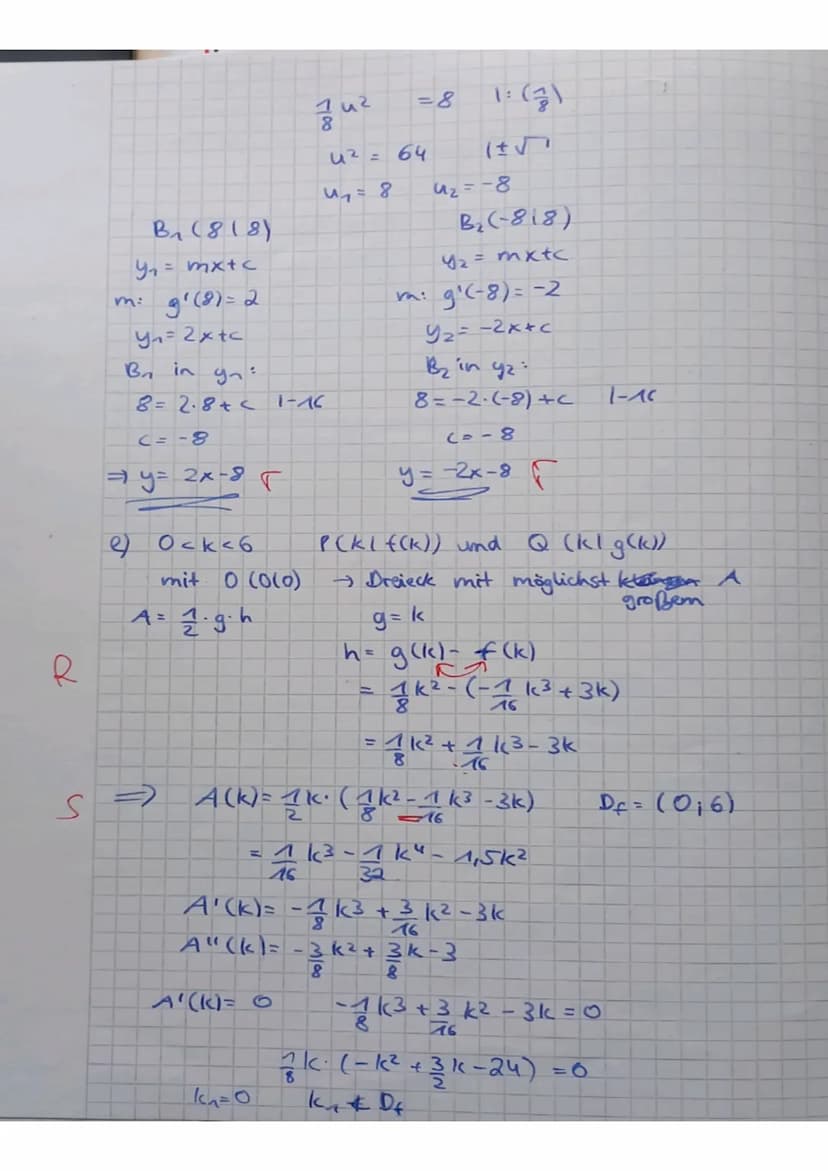 1/8 u² = 8 |:(1/8)
u² = 64 |±√
u₁ = 8 u₂ = -8
B₁ (8|8) B₂ (-8|8)
y₁ = mx+c y₂ = mx+c
m: g'(8) = 2 m: g'(-8) = -2
y₁ = 2x+c y₂ = -2x+c
B₁ in y₁: B₂ in y₂:
8 = 2·8+c |-16 8 = -2·(-8)+c |-16
c = -8 c = -8
⇒ y = 2x-8 Γ y = -2x-8 Γ
e) 0<k<6 P(k|f(k)) und Q (k|g(k))
mit O (0|0) → Dreieck mit möglichst großem A
A = 1/2 · g · h g = k
h = g(k) - f(k)
R = 1/8 k² - (-1/16 k³ + 3k)
= 1/8 k² + 1/16 k³ - 3k
S ⇒ A(k) = 1/2 k · (1/8 k² - 1/16 k³ - 3k) Df = (0;6)
= 1/16 k³ - 1/32 k⁴ - 1,5k²
A'(k) = -1/8 k³ + 3/16 k² - 3k
A''(k) = -3/8 k² + 3/8 k - 3
A'(k) = 0 -1/8 k³ + 3/16 k² - 3k = 0
1/8 k · (-k² + 3/2 k - 24) = 0
k₁ = 0 k₁ ∉ Df